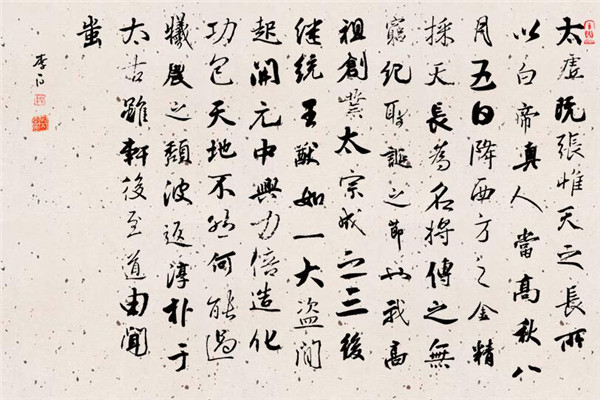 太虚既張惟天之長所
以白帝真人當高秋八
月五日降西方之金精
採天長為名將傳之無
窮紀聖誕之節也我高
祖創業太宗成之三後
继統王猷如一大盗間
起開元中興力倍造化
功包天地不然何能過
犧農之頹波返淳朴于
太古雖軒後至道由聞
蚩
李白